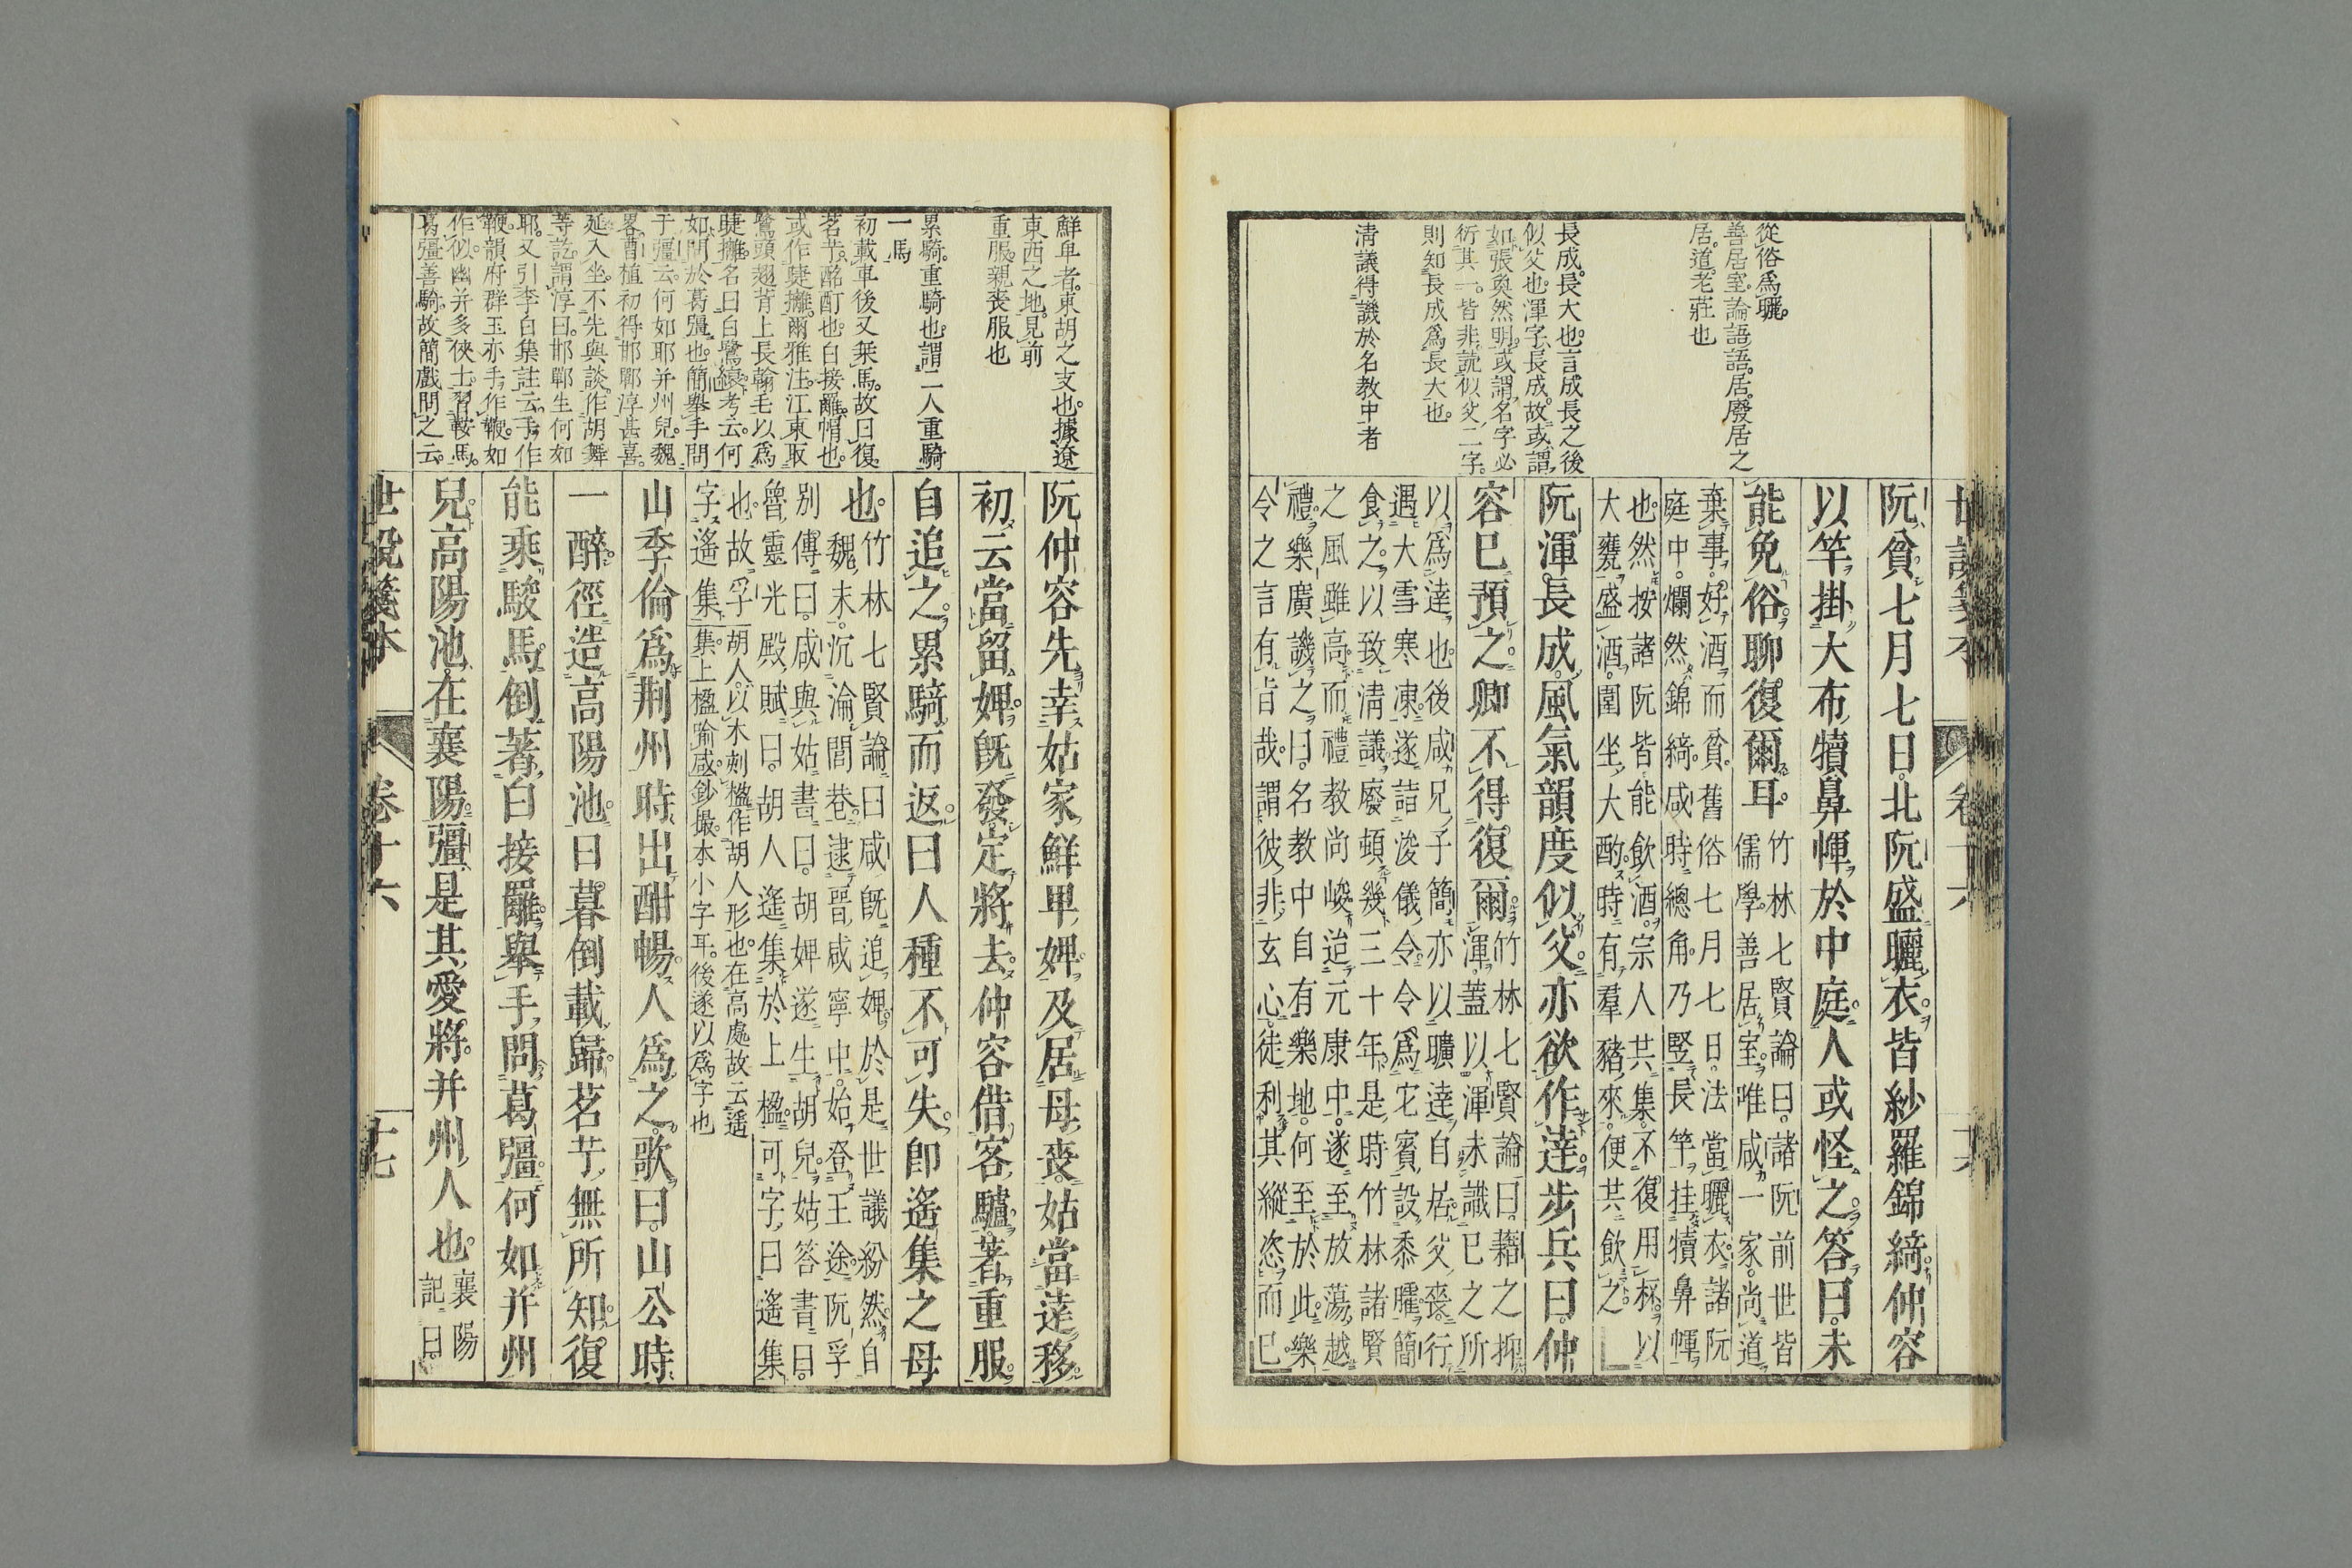 從俗爲曬
善居室論語語居廢居之
居道老莊也
長成長大也言成長之後
似父也渾字長成故或謂
如張奐然明或謂名字必
衍其一皆非說似父二字
則知長成爲長大也
淸議得譏於名教中者
阮貧七月七日北阮盛曬衣皆紗羅錦綺仲容
以竿掛大布犢鼻㡓於中庭人或怪之答曰未
能免俗聊復爾耳
竹林七賢論曰諸阮前世皆
儒學善居室唯咸一家尚道
棄事好酒而貧舊俗七月七日法當曬衣諸阮
庭中爛然錦綺咸時總角乃竪長竿挂犢鼻㡓
也然按諸阮皆能飮酒宗人共集不復用杯以
大甕盛酒圍坐大酌時有羣豬來便共飮之
阮渾長成風氣韻度似父亦欲作達步兵曰仲
容已預之卿不得復爾
竹林七賢論曰籍之抑
渾蓋以渾未識已之所
以爲達也後咸兄子簡亦以曠達自居父喪行
遇大雪寒凍遂詣浚儀令令爲它賓設黍臛簡
食之以致淸議廢頓幾三十年是時竹林諸賢
之風雖高而禮教尚峻迨元康中遂至放蕩越
禮樂廣譏之曰名教中自有樂地何至於此樂
令之言有旨哉謂彼非玄心徒利其縱恣而已
鮮卑者東胡之支也據遼
東西之地見前
重服親喪服也
累騎重騎也謂二人重騎
一馬
初載車後又乗馬故曰復
茗艼酩酊也白接䍦帽也
或作睫攡爾雅注江東取
鷺頭翅背上長翰毛以爲
睫攡名曰白鷺縗考云何
如問於葛彊也簡舉手問
于彊云何如耶并州兒魏
畧曹植初得邯鄲淳甚喜
延入坐不先與談作胡舞
等訖謂淳曰邯鄲生何如
耶又引李白集註云手作
鞭韻府群玉亦手作鞭如
作似幽并多俠士習鞍馬
葛彊善騎故簡戲問之云
阮仲容先幸姑家鮮卑婢及居母喪姑當達移
初云當留婢旣發定將去仲容借客驢著重服
自追之累騎而返曰人種不可失卽遙集之母
也
竹林七賢論曰咸旣追婢於是世議紛然自
魏末沉淪閭巷逮晉咸寧中始登王途阮孚
別傳曰咸與姑書曰胡婢遂生胡兒姑答書曰
魯靈光殿賦曰胡人遙集於上楹可字曰遙集
也故孚
字遙集
胡人以木刻楹作胡人形也在高處故云遙
集上楹喻咸鈔撮本小字耳後遂以爲字也
山季倫爲荆州時出酣暢人爲之歌曰山公時
一醉徑造高陽池日暮倒載歸茗艼無所知復
能乘駿馬倒著白接䍦舉手問葛彊何如并州
兒高陽池在襄陽彊是其愛將并州人也
襄陽
記曰
世說箋本 卷十六 十七